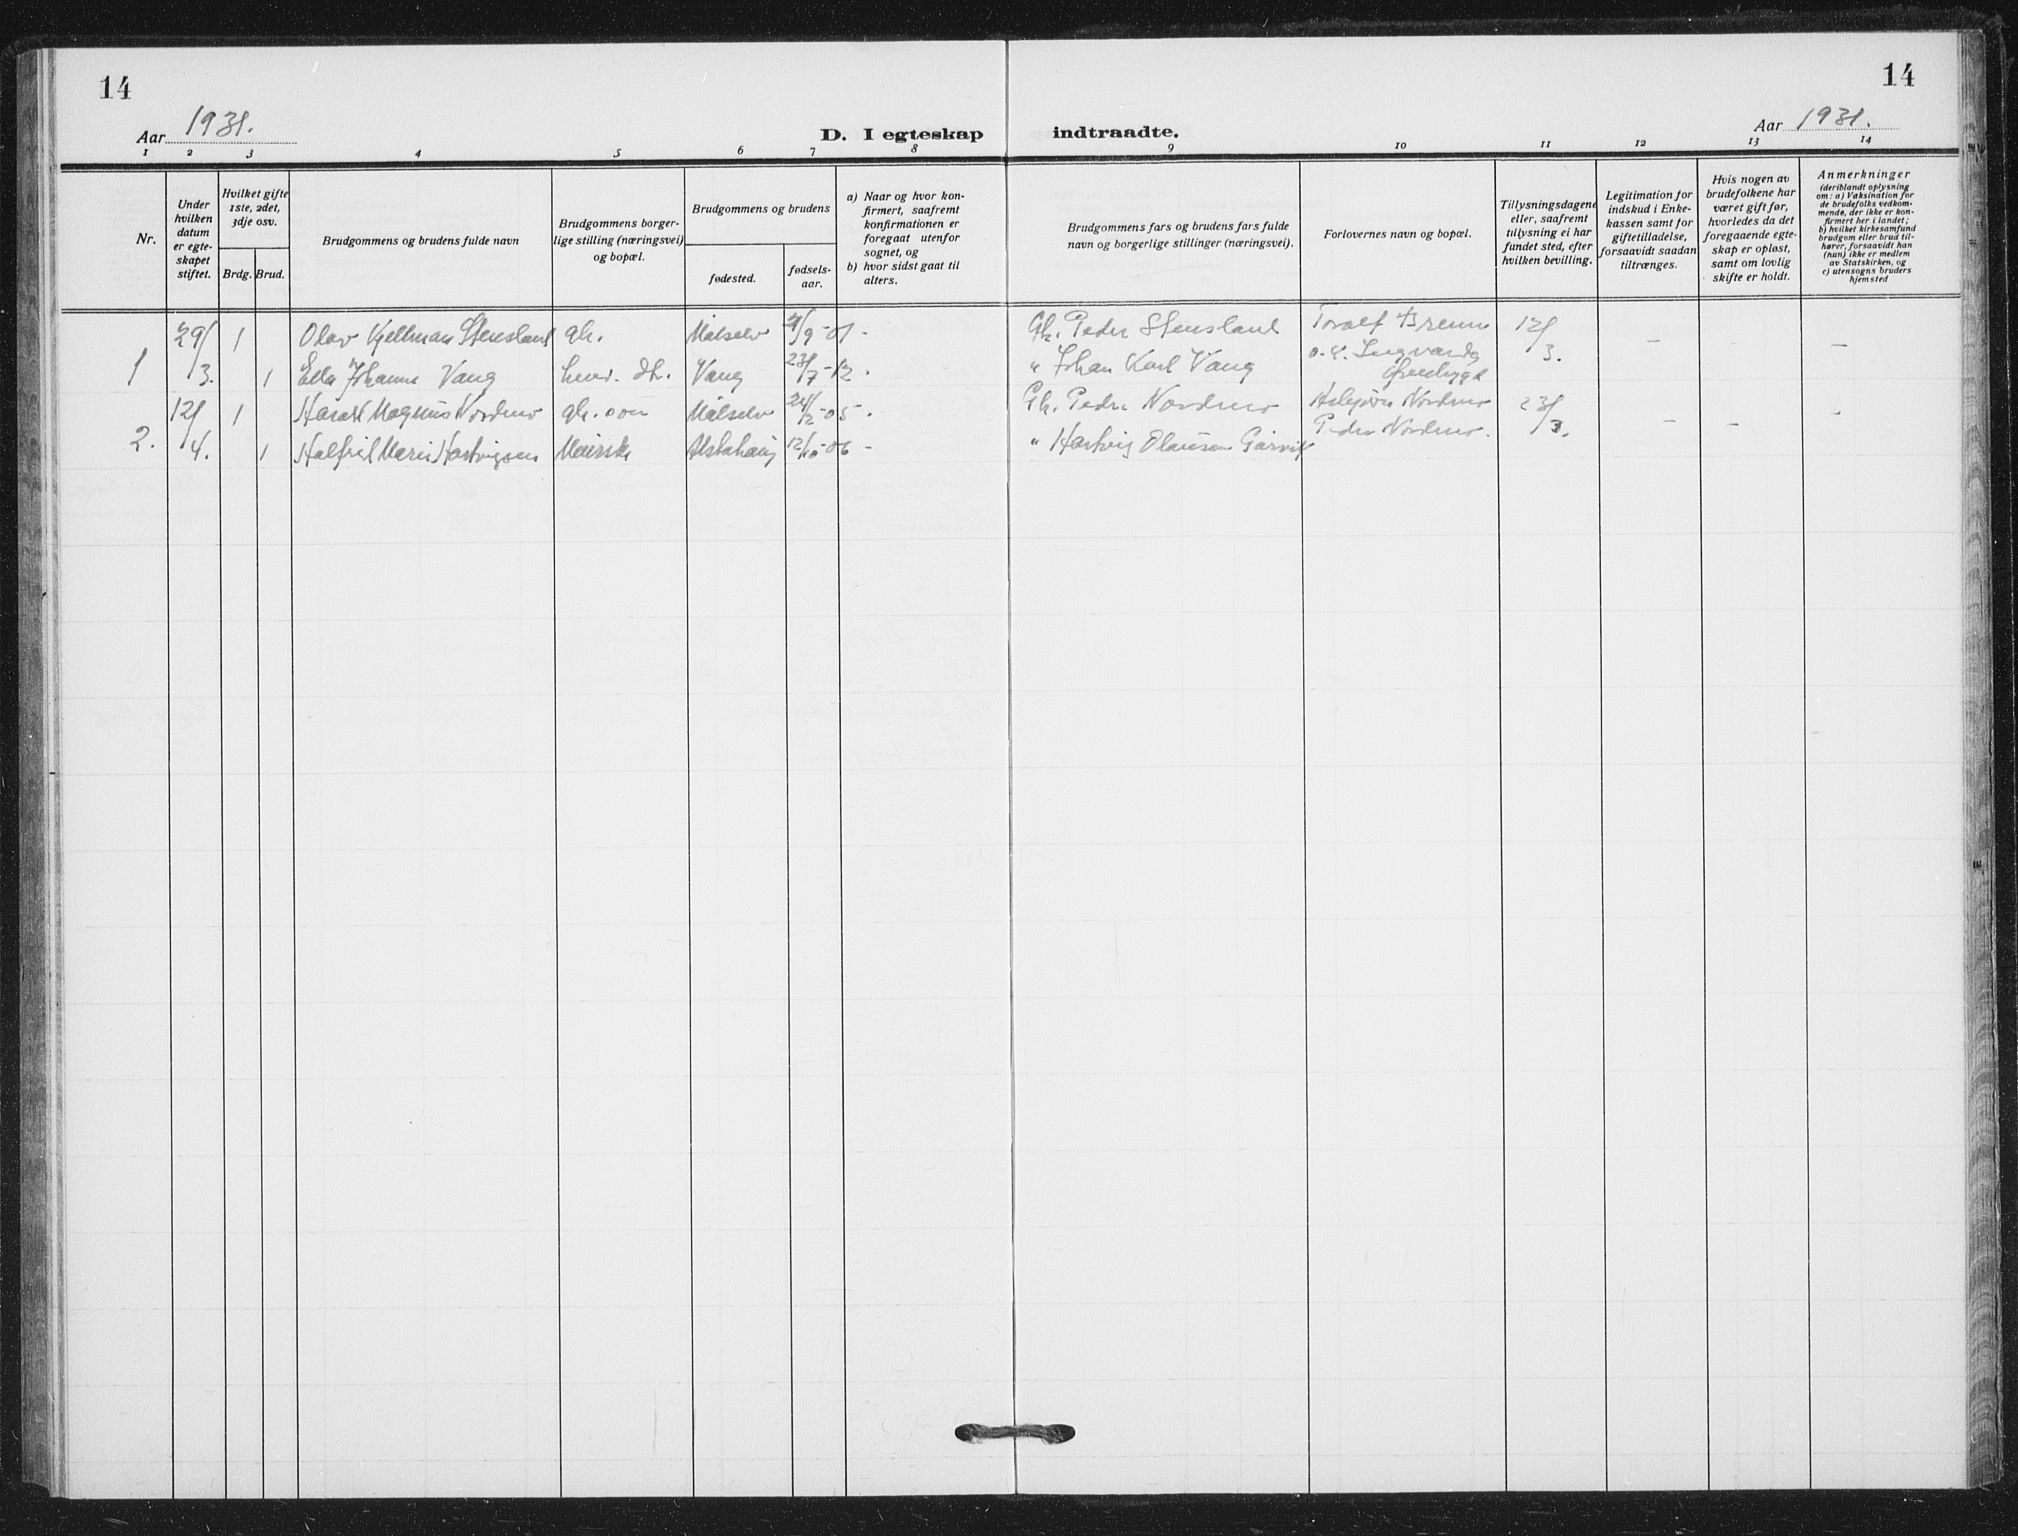 14
14
Aar 1931.
D. I egteskap indtraadte.
Aar 1931.
1 2 3 4 5 6 7 8 9 10 11 12 13 14
Nr.
Under hvilken datum er egte-skapet stiftet.
Hvilket gifte 1ste, 2det, 3dje osv.
Brdg. Brud.
Brudgommens og brudens fulde navn
Brudgommens borger-lige stilling (næringsvei) og bopæl.
Brudgommens og brudens
fødested.
fødsels-aar.
a) Naar og hvor kon-firmert, saafremt konfirmationen er foregaat utenfor sognet, og
b) hvor sidst gaat til alters.
Brudgommens fars og brudens fars fulde navn og borgerlige stillinger (næringsvei).
Forlovernes navn og bopæl.
Tillysningsdagene eller, saafremt tillysning ei har fundet sted, efter hvilken bevilling.
Legitimation for indskud i Enke-kassen samt for giftetilladelse, forsaavidt saadan tiltrænges.
Hvis nogen av brudefolkene har været gift før, hvorledes da det foregaaende egte-skap er opløst, samt om lovlig skifte er holdt.
Anmerkninger (deriblandt oplysning om: a) Vaksination for de brudefolks vedkom-mende, der ikke er kon-firmert her i landet; b) hvilket kirkesamfund brudgom eller brud til-hører, forsaavidt han (hun) ikke er medlem av Statskirken, og c) utensogns bruders hjemsted
29/ 1 Olav Kjellman Stensland gh. Målselv 9-01 - Gh. Peder Stensland Toralf Bremu 12/
1 3. 1 Ella Johanne Vang Vang 23/7-12. " Johan Karl Vang 3. - -
12/ 1 Harald Magnus Nordmo gh. søn Målselv 24/2-05. Gh. Peder Nordmo Asbjørn Nordmo 23/
2. 4. 1 Halfrid Marie Hartvigsen Alstahaug 12/10-06 - " Hartvig Olausen Peder Nordmo. 3. - - -